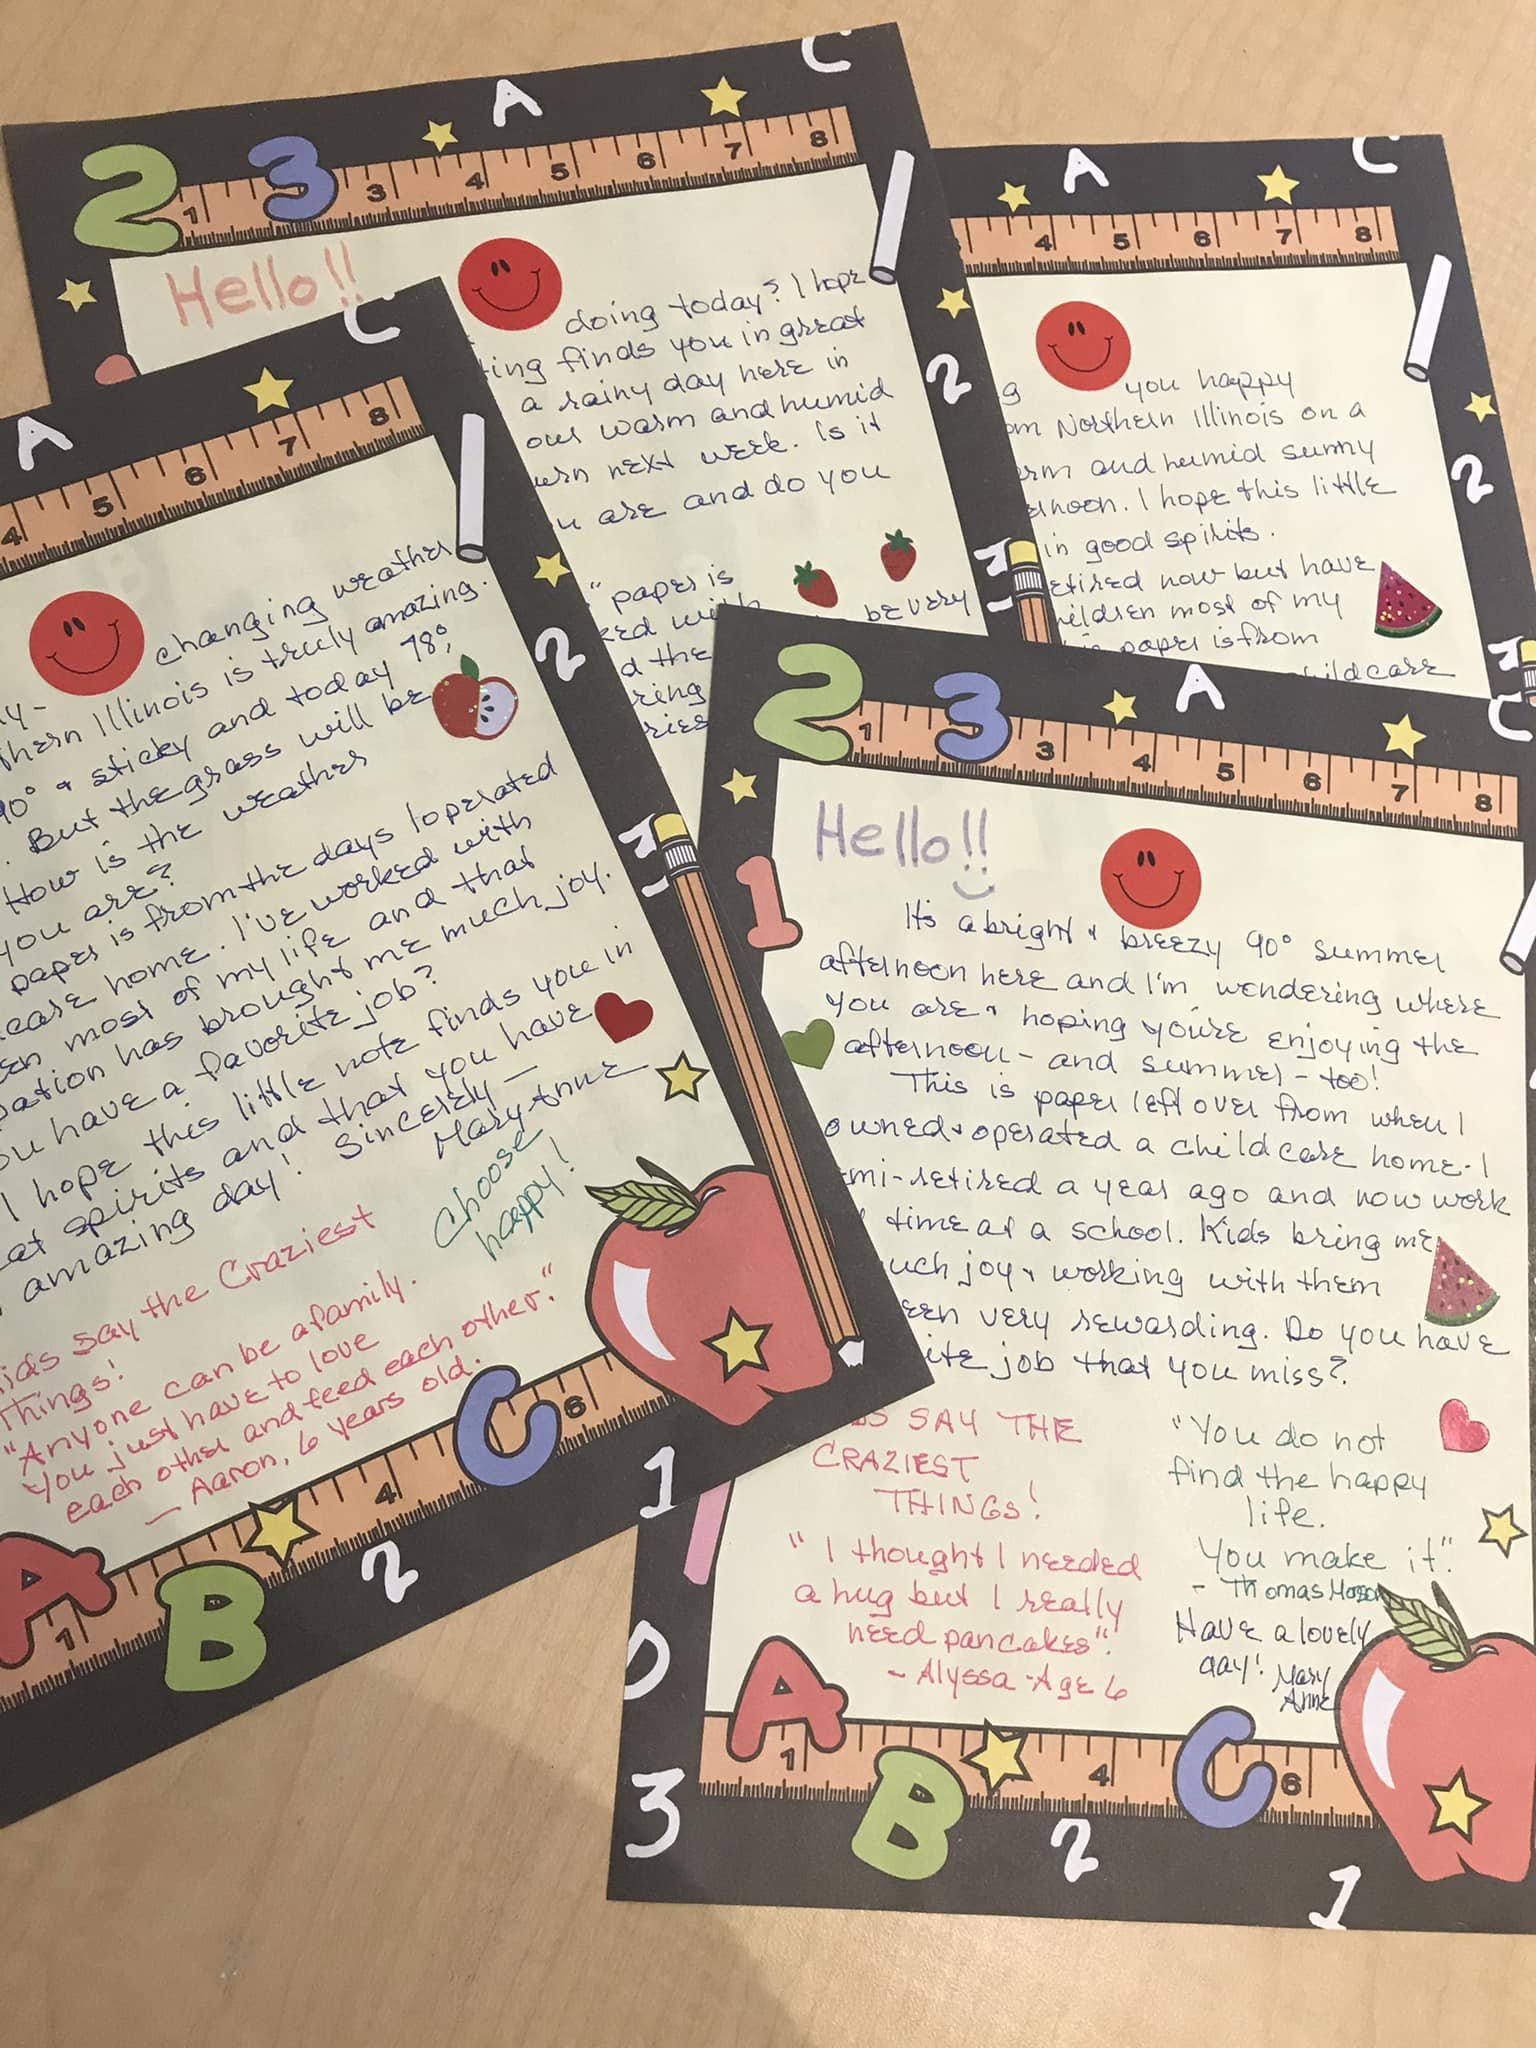 Hello!!
doing today? I hope
finds you in great
a rainy day here in
our warm and humid
next week. Is it
are and do you
" paper is
with
the
be very
you happy
Northern Illinois on a
and humid sunny
I hope this little
in good spirits.
now but have
most of my
paper is from
changing weather
Illinois is truly amazing.
90° & sticky and today 78°,
But the grass will be
How is the weather
you are?
paper is from the days I operated
care home. I've worked with
most of my life and that
has brought me much joy.
have a favorite job?
I hope this little note finds you in
spirits and that you have
amazing day! Sincerely -
Mary Anne
Choose
happy!
say the Craziest
Things!
"Anyone can be a family.
You just have to love
each other and feed each other."
- Aaron, 6 years old.
Hello!!
It's a bright & breezy 90° summer
afternoon here and I'm wondering where
you are & hoping you're enjoying the
afternoon - and summer - too!
This is paper left over from when I
owned & operated a child care home. I
semi-retired a year ago and now work
time at a school. Kids bring me
much joy & working with them
been very rewarding. Do you have
job that you miss?
SAY THE
CRAZIEST
THINGS!
"I thought I needed
a hug but I really
need pancakes".
- Alyssa - Age 6
"You do not
find the happy
life.
You make it".
- Thomas
Have a lovely
day! Mary
Anne